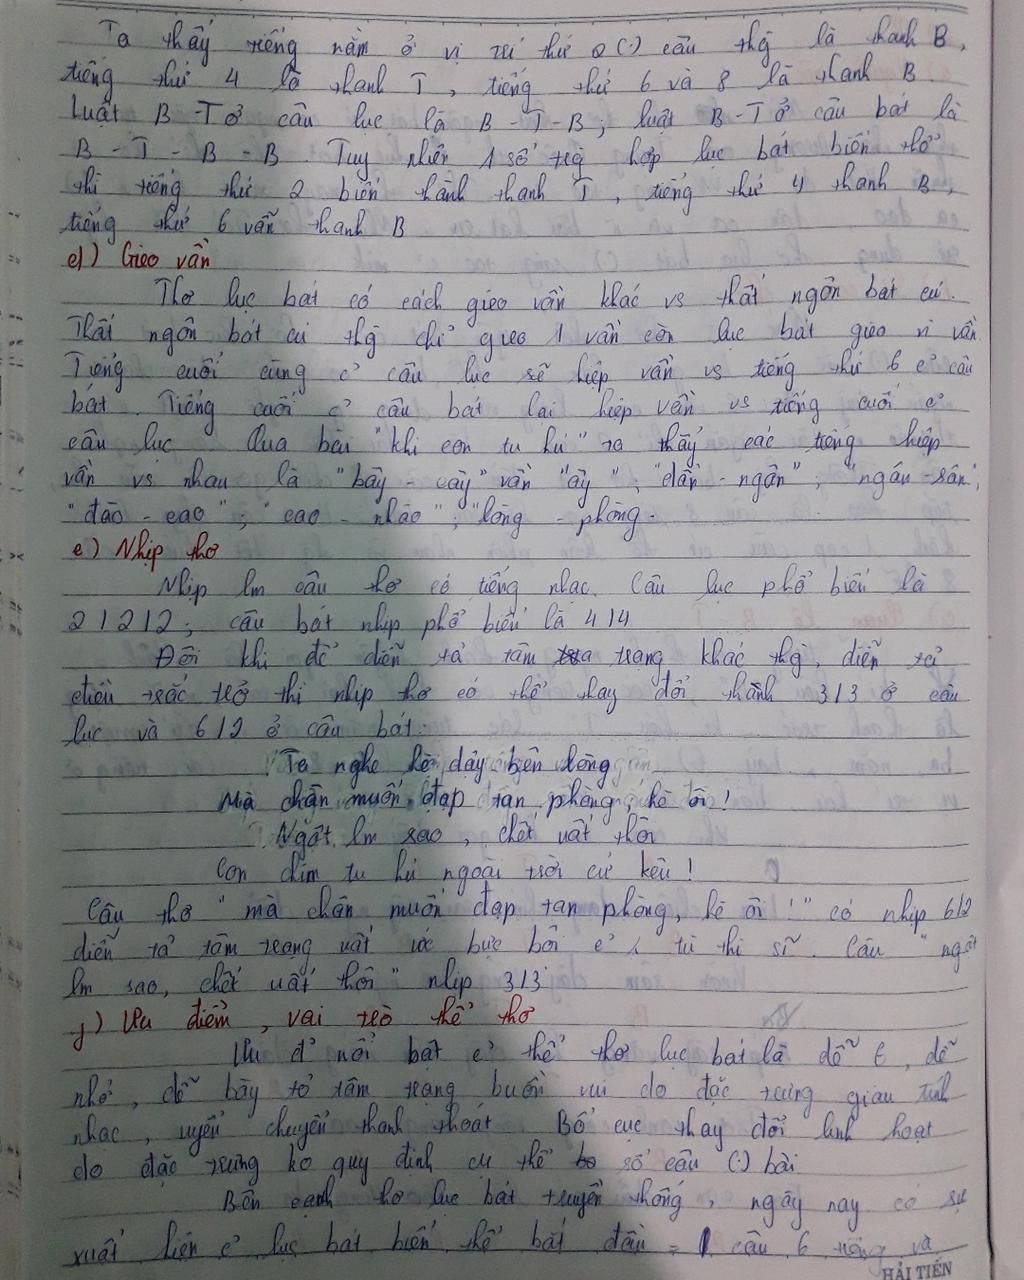 Ta thấy tiếng nằm ở vị trí thứ 2 (.) câu thg là thanh B,
tiếng thứ 4 là thanh T, tiếng thứ 6 và 8 là thanh B
Luật B - T ở câu lục là B - T - B, luật B - T ở câu bát là
B - T - B - B. Tuy nhiên 1 số trg hợp lục bát biến thể
thì tiếng thứ 2 biến thành thanh T, tiếng thứ 4 thanh B,
tiếng thứ 6 vẫn thanh B
d) Gieo vần
Thơ lục bát có cách gieo vần khác vs thất ngôn bát cú.
Thất ngôn bát cú thg chỉ gieo 1 vần còn lục bát gieo n vần.
Tiếng cuối cùng c̉ câu lục sẽ hiệp vần vs tiếng thứ 6 c̉ câu
bát. Tiếng cuối c̉ câu bát lại hiệp vần vs tiếng cuối c̉
câu lục. Qua bài "khi con tu hú" ta thấy các tiếng hiệp
vần vs nhau là "bầy - cày" vần "ây", "dần - ngân"; "ngân - sân";
"đào - cao"; "cao - nhào"; "lòng - phòng.
e) Nhịp thơ
Nhịp lm câu thơ có tiếng nhạc. Câu lục phổ biến là
2/2/2; câu bát nhịp phổ biến là 4/4
Đôi khi để diễn tả tâm trạng khác thg, diễn tả
điều trắc trở thì nhịp thơ có thể thay đổi, thành 3/3 ở câu
lục và 6/2 ở câu bát.
"Ta nghe hè dậy bên lòng
Mà chân muốn đạp tan phòng, hè ôi!
Ngột lm sao, chết uất thôi
Con chim tu hú ngoài trời cứ kêu!
Câu thơ "mà chân muốn đạp tan phòng, hè ôi!" có nhịp 6/2
diễn tả tâm trạng uất ức bực bối c̉ tù thi sĩ. Câu "ngột
lm sao, chết uất thôi" nhịp 3/3
f) Ưu điểm, vai trò thể thơ
Ưu đ' nổi bật c̉ thể thơ lục bát là dễ t, dễ
nhớ, dễ bày tỏ tâm trạng buồn vui do đặc trưng giàu tính
nhạc, uyển chuyển thanh thoát. Bố cục thay đổi linh hoạt
do đặc trưng ko quy định cụ thể số câu (.) bài.
Bên cạnh thơ lục bát truyền thống, ngày nay có sự
xuất hiện c̉ lục bát biến thể bắt đầu = 1 câu 6 tiếng và
HẢI TIẾN